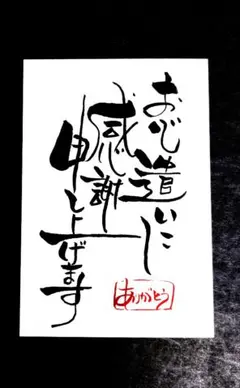 お心遣いに
感謝
申し上げます
ありがとう